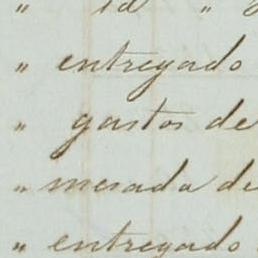 " id "
" entregado
" gastos de
" mesada de
" entregado